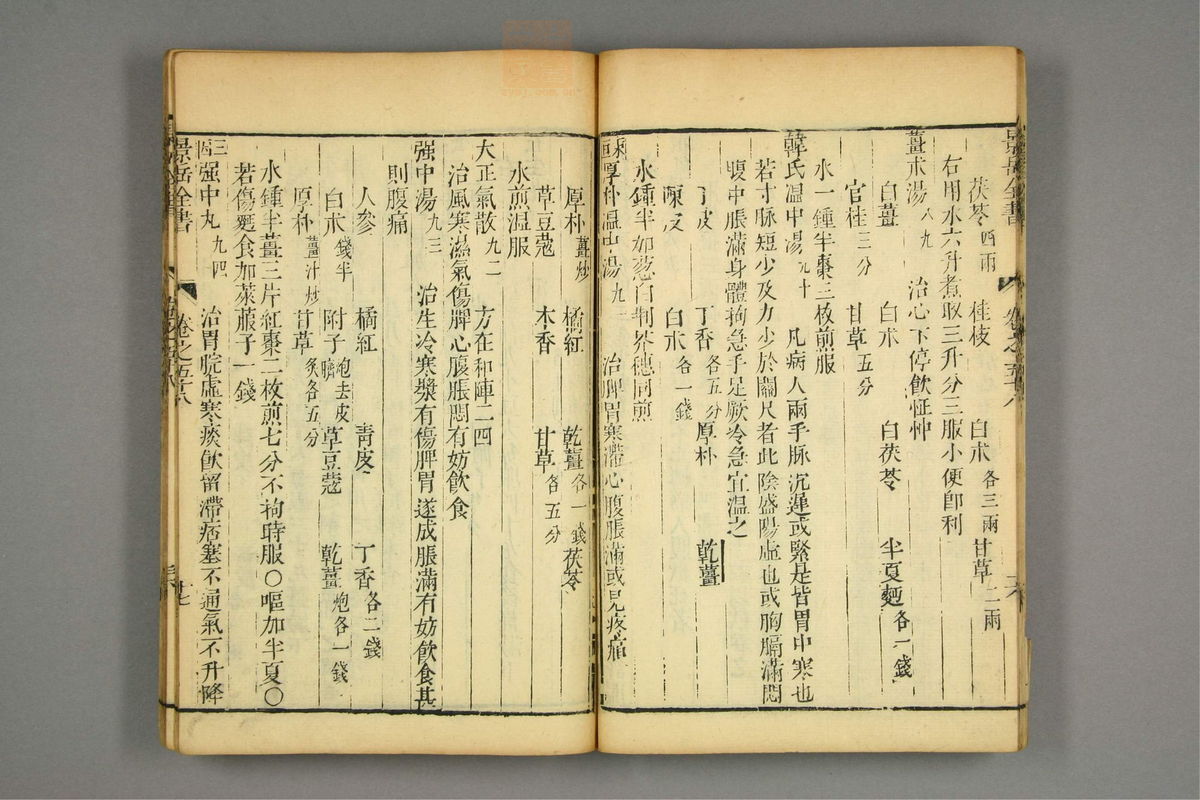 景岳全書 卷之五十八
茯苓四兩 桂枝 白朮各三兩 甘草二兩
右用水六升煮取三升分三服小便卽利
薑朮湯八九 治心下停飲怔忡
白薑 白朮 白茯苓 半夏麯各一錢
官桂三分 甘草五分
水一鍾半棗三枚煎服
韓氏溫中湯九十 凡病人兩手脉沉遲或緊是皆胃中寒也
若寸脉短少及力少於關尺者此陰盛陽虛也或胸膈滿悶
腹中脹滿身體拘急手足厥冷急宜溫之
丁皮 丁香各五分 厚朴 乾薑
陳皮 白朮各一錢
水鍾半加葱白荆芥穗同煎
厚朴溫中湯九一 治脾胃寒滯心腹脹滿或見疼痛
厚朴薑炒 橘紅 乾薑各一錢 茯苓
草豆蔻 木香 甘草各五分
水煎溫服
大正氣散九二 方在和陣二四
治風寒濕氣傷脾心腹脹悶有妨飲食
强中湯九三 治生冷寒漿有傷脾胃遂成脹滿有妨飲食甚
則腹痛
人參 橘紅 靑皮 丁香各二錢
白朮錢半 附子炮去皮臍 草豆蔻 乾薑炮各一錢
厚朴薑汁炒 甘草炙各五分
水鍾半薑三片紅棗二枚煎七分不拘時服○嘔加半夏○
若傷麪食加萊菔子一錢
强中丸九四 治胃脘虛寒痰飲留滯痞塞不通氣不升降
景岳全書 卷之五十八 廿七